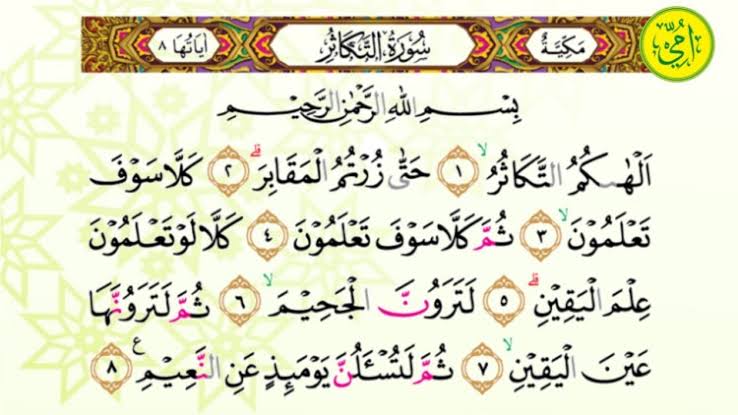 مَكِّيَّةٌ سُورَةُ التَّكَاثُرِ اٰيَاتُهَا ٨
أُمِّي
بِسْمِ اللّٰهِ الرَّحْمٰنِ الرَّحِيْمِ
اَلْهٰىكُمُ التَّكَاثُرُ ۙ ١ حَتّٰى زُرْتُمُ الْمَقَابِرَ ۗ ٢ كَلَّا سَوْفَ
تَعْلَمُوْنَ ۙ ٣ ثُمَّ كَلَّا سَوْفَ تَعْلَمُوْنَ ٤ كَلَّا لَوْ تَعْلَمُوْنَ
عِلْمَ الْيَقِيْنِ ۗ ٥ لَتَرَوُنَّ الْجَحِيْمَ ۙ ٦ ثُمَّ لَتَرَوُنَّهَا
عَيْنَ الْيَقِيْنِ ۙ ٧ ثُمَّ لَتُسْـَٔلُنَّ يَوْمَىِٕذٍ عَنِ النَّعِيْمِ ࣖ ٨